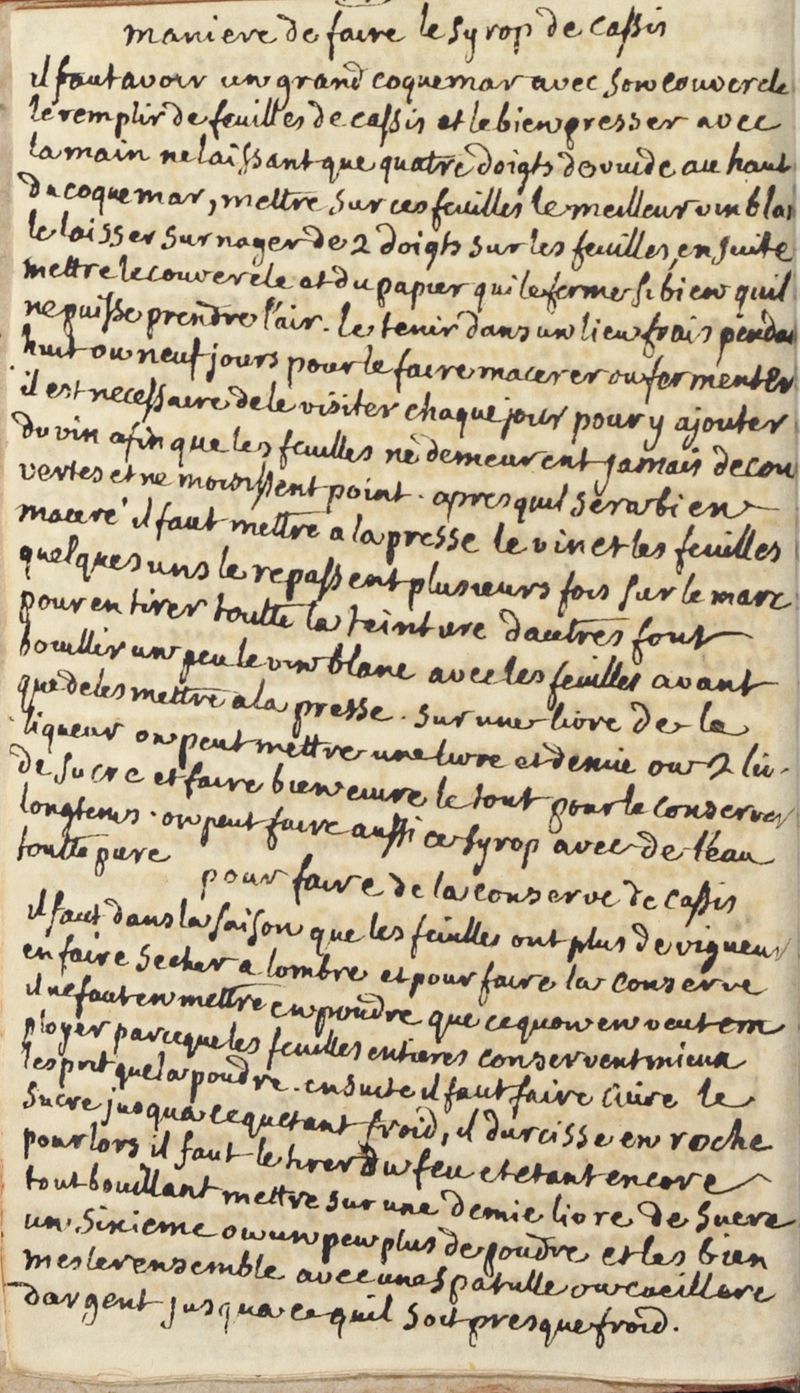 maniere de faire le syrop de cassis
il faut avoir un grand coquemar avec son couvercle
le remplir de feuilles de cassis et le bien presser avec
la main ne laissant que quatre doigts de vuide au haut
du coquemar, mettre sur ces feuilles le meilleur vin blan
le laisser surnager de 2 doigts sur les feuilles, ensuite
mettre le couvercle et du papier qui le ferme si bien quil
ne puisse prendre l'air. le tenir dans un lieu frais pendan
huit ou neuf jours pour le faire macerer ou fermenter
il est necessaire de le visiter chaque jour pour y ajouter
du vin afin que les feuilles ne demeurent jamais decou
vertes et ne moisissent point. apres quil sera bien
maceré il faut mettre a la presse le vin et les feuilles
quelques uns le repassent plusieurs fois sur le marc
pour en tirer toutte la teinture dautres font
bouillir un peu le vin blanc avec les feuilles avant
que de les mettre a la presse. sur une livre de la
liqueur on peut mettre une livre et demie ou 2 liv.
de sucre et faire bien cuire le tout pour le conserver
longtems. on peut faire aussi ce syrop avec de l'eau
toutte pure
pour faire de la conserve de cassis
il faut dans la saison que les feuilles ont plus de vigueur
en faire secher a lombre et pour faire la conserve
il ne faut en mettre en poudre que ce quon en veut em
ployer parceque les feuilles entieres conservent mieux
lesprit que la poudre. ensuite il faut faire cuire le
sucre jusqua ce quetant froid, il durcisse en roche
pour lors il faut le tirer du feu et etant encore
tout bouillant mettre sur une demie livre de sucre
un sixieme ou un peu plus de poudre et les bien
mesler ensemble avec une spatulle ou cueillere
dargent jusqua ce quil soit presque froid.